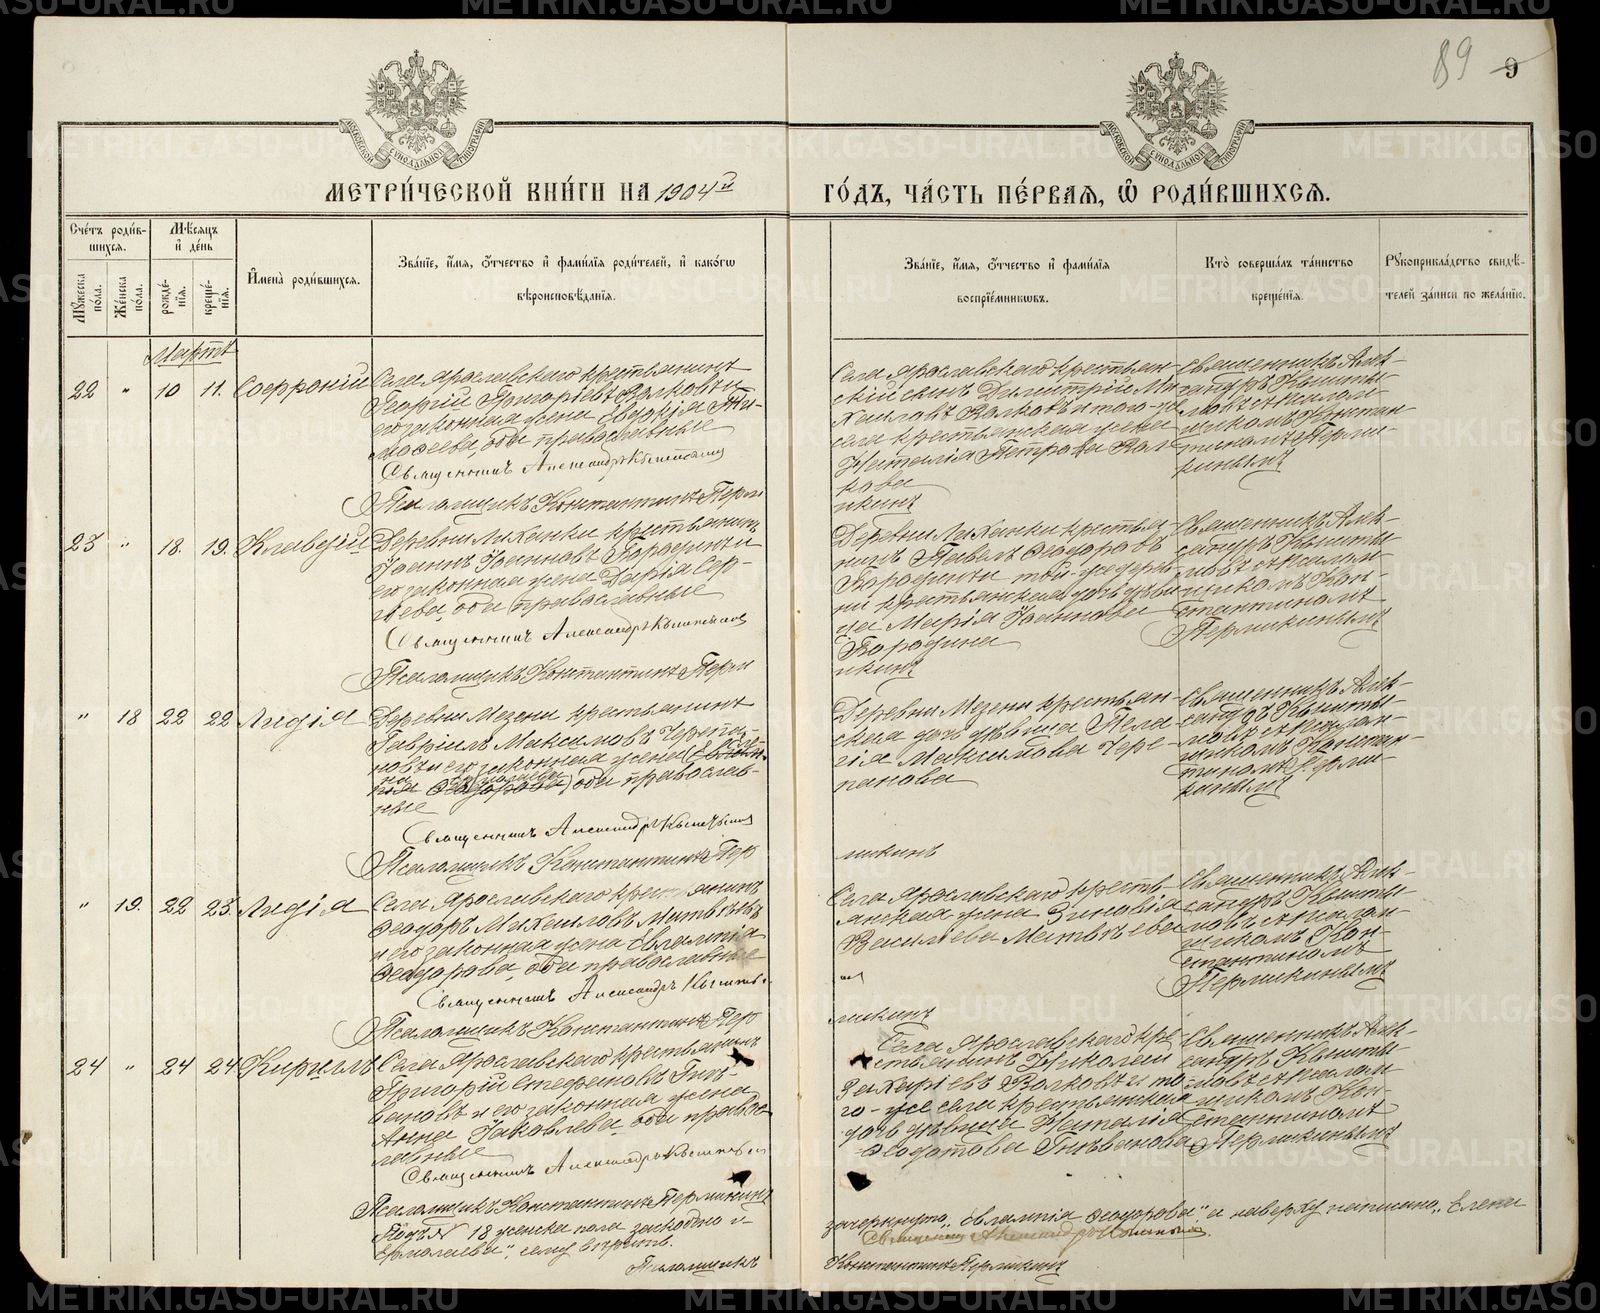 89 9
МОСКОВСКОЙ СѴНОДАЛЬНОЙ ТИПОГРАФІИ
МОСКОВСКОЙ СѴНОДАЛЬНОЙ ТИПОГРАФІИ
МЕТРИ́ЧЕСКОЙ КНИ́ГИ НА 1904й ГО́ДЪ, ЧА́СТЬ ПЕ́РВАЯ, Ѡ РОДИ́ВШИХСЯ.
Сче́тъ роди́в-
шихся.
Мѣ́сяцъ
и де́нь
Му́жеска
по́ла.
Же́нска
по́ла.
рожде́-
нія.
креще́-
нія.
Имена̀ роди́вшихся.
Зва́ніе, и́мя, о́тчество и фами́лія роди́телей, и како́гѡ
вѣроисповѣ́данія.
Зва́ніе, и́мя, о́тчество и фами́лія
воспріе́мниковъ.
Кто̀ соверша́лъ та́инство
креще́нія.
Рукоприкла́дство свидѣ́-
телей за́писи по жела́нію.
Мартъ
22 " 10 11. Софроній
Села Ярославскаго крестьянинъ
Георгій Григоріевъ Волковъ и
его законная жена Евдокія Ти-
мофеева, оба православные
Священникъ Александръ
Псаломщикъ Константинъ Перми
Села Ярославскаго крестьян-
скій сынъ Димитрій Ми
хаиловъ Волковъ и того-же
села крестьянская жена
Наталія Петрова Вол
кова
кинъ
Священникъ Алек-
сандръ
съ псалом-
щикомъ Констан
тиномъ Перми-
кинымъ
23 " 18. 19. Клавдій
Деревни крестьянинъ
Іоаннъ Іоанновъ Бородинъ и
его законная жена Дарія Сер-
геева, оба православные
Священникъ Александръ
Псаломщикъ Константинъ Перми
Деревни крестья-
нинъ Павелъ Ѳеодоровъ
Бородинъ и той-же дерев-
ни крестьянская дочь дѣви
ца Марія Іоаннова
Бородина
кинъ
Священникъ Алек-
сандръ
съ псалом-
щикомъ Кон-
стантиномъ
Пермикинымъ
" 18 22 22 Лидія
Деревни Мезени крестьянинъ
Гавріилъ Максимовъ Черепа-
новъ и его законная жена
оба православ-
ные
Священникъ Александръ
Псаломщикъ Константинъ Пер
Деревни Мезени крестьян-
ская дочь дѣвица Пела
гія Максимова Чере-
панова
микинъ
Священникъ Алек-
сандръ
съ псалом-
щикомъ Констан-
тиномъ Перми-
кинымъ
" 19. 22 23. Лидія
Села Ярославскаго крестьянинъ
Ѳеодоръ Михаиловъ Матвѣевъ
и его законная жена Евлампія
Ѳеодорова, оба православные
Священникъ Александръ
Псаломщикъ Константинъ Пер
Села Ярославскаго кресть-
янская жена Зиновія
Васильева Матвѣева
микинъ
Священникъ Алек-
сандръ
съ псалом-
щикомъ Кон-
стантиномъ
Пермикинымъ
24 " 24 24 Кириллъ
Села Ярославскаго крестьянинъ
Григорій Стефановъ Гнѣ-
вановъ и его законная жена
Анна Іаковлева, оба право
славные
Священникъ Александръ
Псаломщикъ Константинъ Пермикинъ
Села Ярославскаго кре
стьянинъ Николай
Захаріевъ Волковъ и то
го-же села крестьянская
дочь дѣвица Наталія
Ѳеодотова Гнѣванова
Священникъ Алек-
сандръ
съ псалом-
щикомъ Кон-
стантиномъ
Пермикинымъ
Подъ № 18 женска пола
зачеркнуто „Евлампія Ѳеодорова" а наверху написано „Елена
Ермолаева", сему вѣрить.
Священникъ Александръ
Псаломщикъ Константинъ Пермикинъ
METRIKI.GASO-URAL.RU